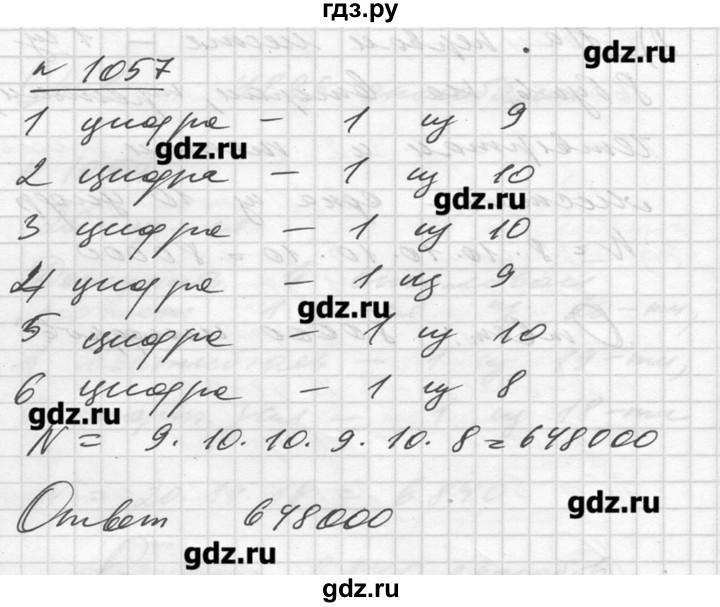 гдз.ру
gdz.ru
№ 1057
1 цифра – 1 из 9
gdz.ru
2 цифра – 1 из 10
gdz.ru
3 цифра – 1 из 10
4 цифра – 1 из 9
gdz.ru
5 цифра – 1 из 10
6 цифра – 1 из 8
gdz.ru
N = 9. 10. 10. 9. 10. 8 = 648000
gdz.ru
Ответ 648000
gdz.ru
gdz.ru